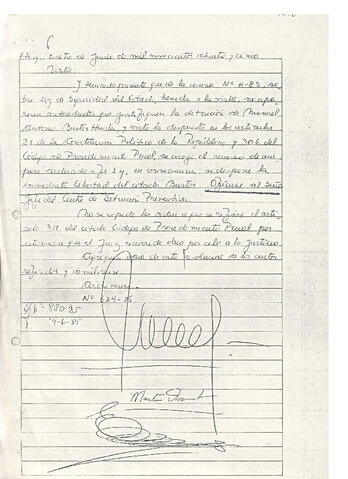 cuatro de Junio de mil novecientos ochenta y cinco
Vistos
Y teniendo presente que de la causa Nº 6-85,
bre Ley de Seguridad del Estado, tenida a la vista, no apa-
recen antecedentes que justifiquen la detención de Manuel
Antonio Bustos Huerta, y visto lo dispuesto en los artículos
21 de la Constitución Política de la República y 306 del
Código de Procedimiento Penal, se acoge el recurso de am-
paro deducido a fs 1 y, en consecuencia, se dispone la
inmediata libertad del citado Bustos. Ofíciese al señor
Jefe del Centro de Detención Preventiva.
No se expide la orden a que se refiere el artí-
culo 311 del citado Código de Procedimiento Penal por
estimarse que el Juez recurrido obró por celo a la justicia
copia de esta resolución a los autos
referidos y devuélvase.
Archívese.
Nº 624-85
880-85
4-6-85